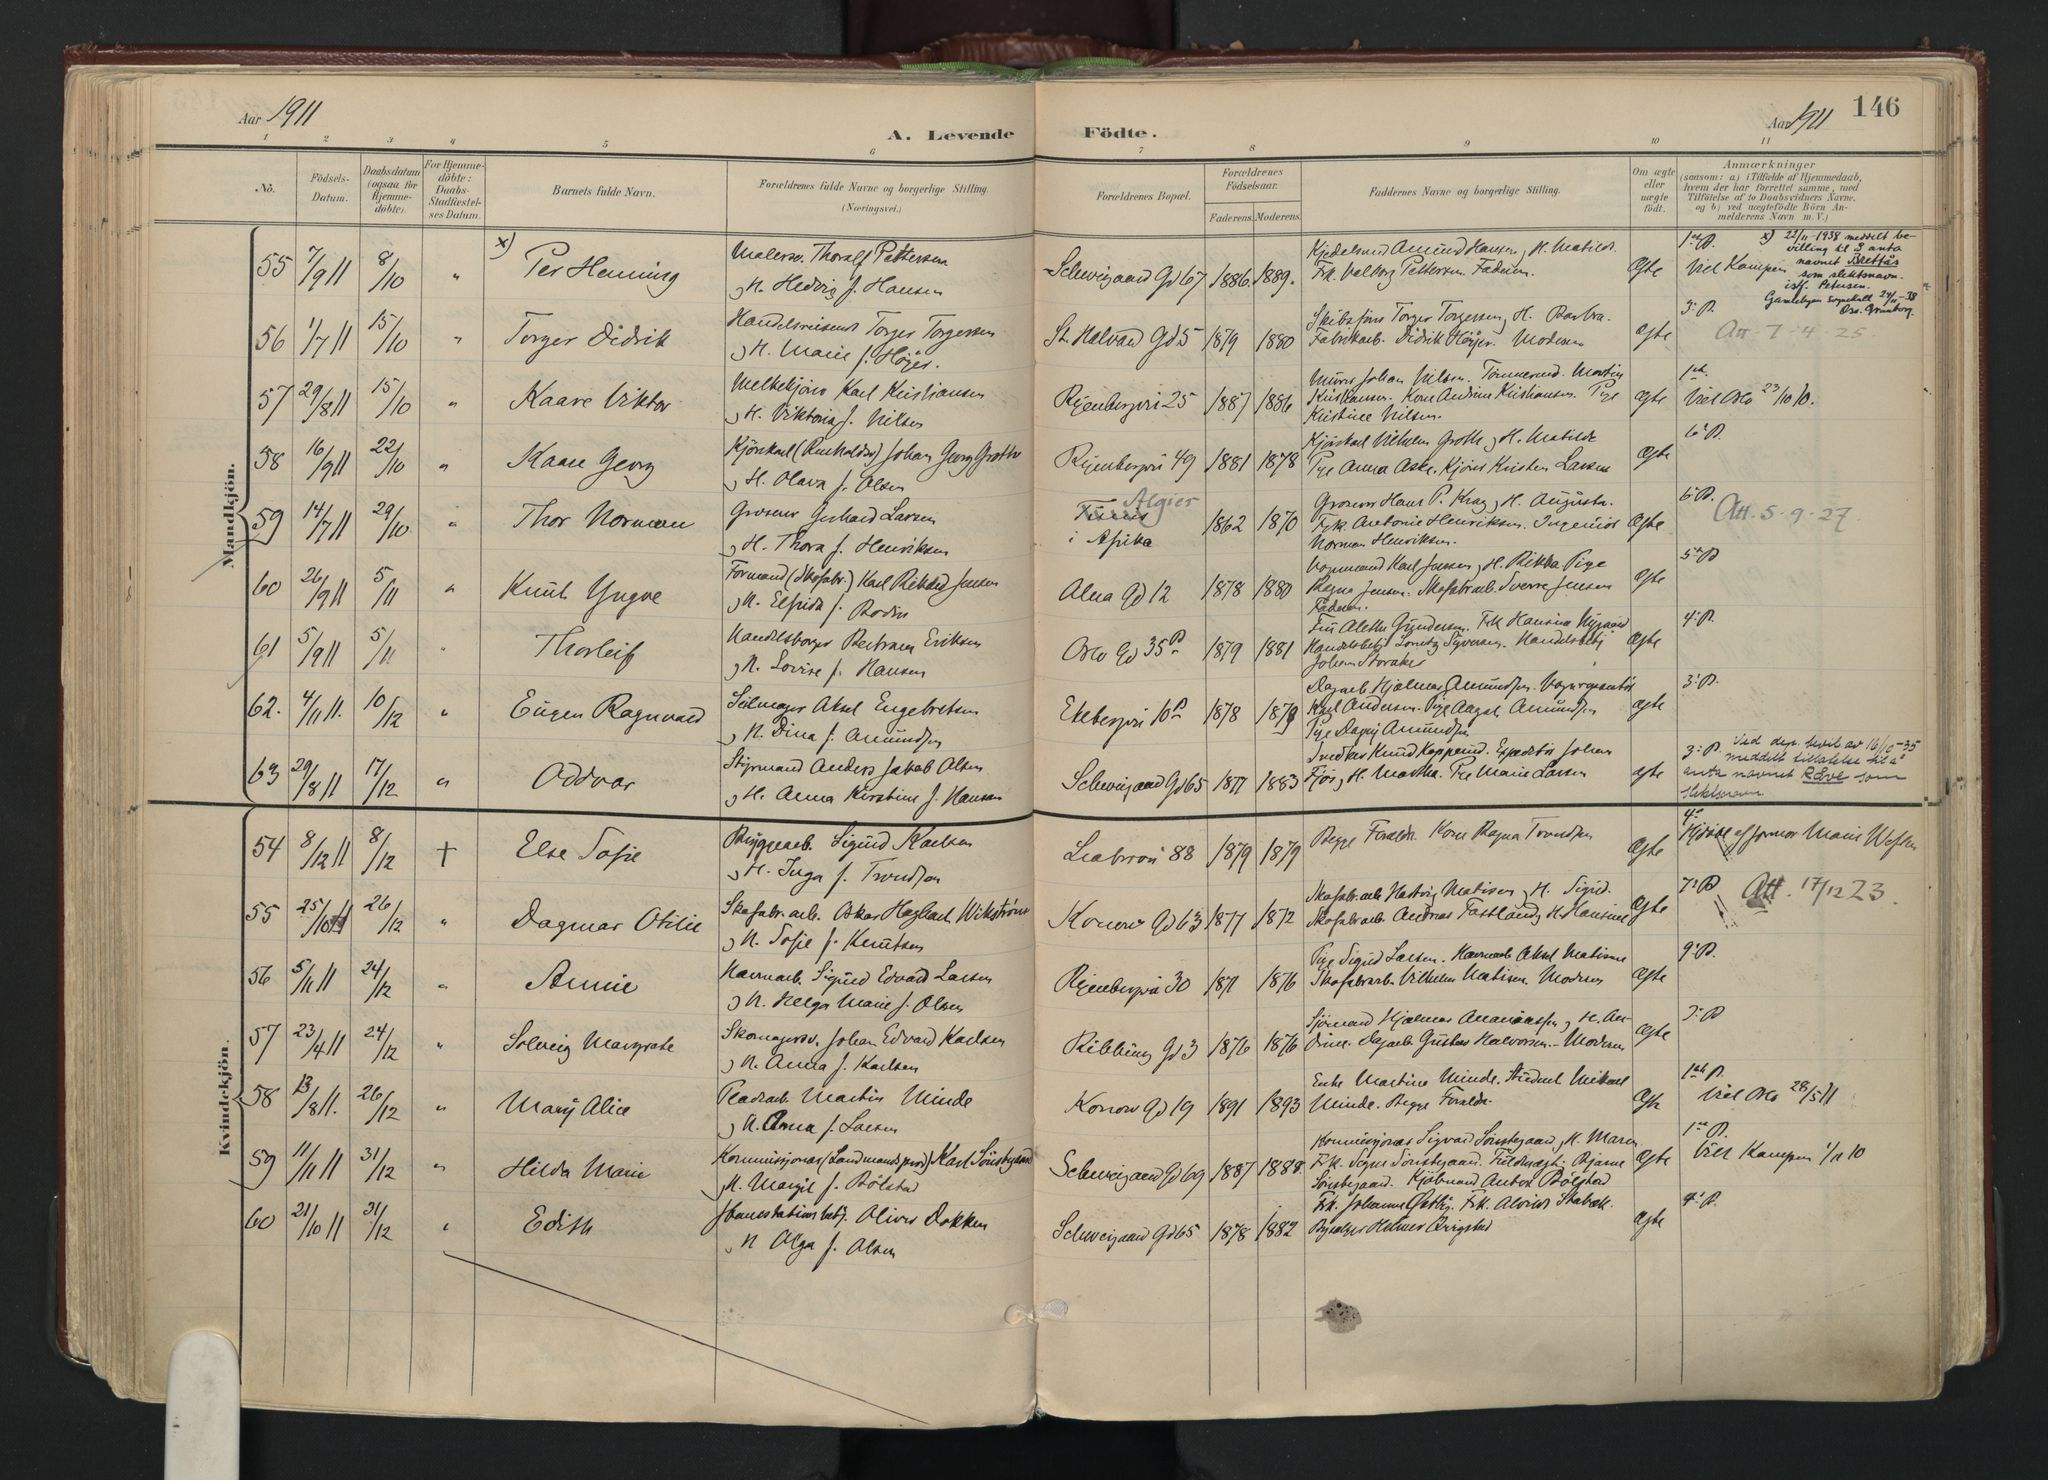 Aar 1911
A. Levende Födte.
Aar 1911
146
1 2 3 4 5 6 7 8 9 10 11
No.
Födsels-Datum.
Daabsdatum (ogsaa for Hjemme-döbte).
For Hjemme-döbte: Daabs-Stadfæstel-ses Datum.
Barnets fulde Navn.
Forældrenes fulde Navne og borgerlige Stilling.
(Næringsvei.)
Forældrenes Bopæl.
Forældrenes Födselsaar.
Faderens. Moderens.
Faddernes Navne og borgerlige Stilling.
Om ægte eller uægte födt.
Anmærkninger
(saasom: a) i Tilfælde af Hjemmedaab,
hvem der har forrettet samme, med
Tilföielse af to Daabsvidners Navne,
og b) ved uægtefödte Börn An-
melderens Navn m. V.)
Mandkjön.
55 7/9 11 8/10 " x) Per Henning
Malersv. Thoralf Pettersen
og H. Hedvig f. Hansen
Schweigaard Gd 67 1886. 1889.
Kjedelsmed Amund Hansen og H. Matilde
Frk. Valborg Pettersen. Faderen.
Ægte
1ste P.
Viel Kampen
x) 22/11-1938 meddelt be-
villing til å anta
navnet Brettås
som slektsnavn
isf. Petersen.
Gamlebyen sognekall 24/11-38
56 1/7 11 15/10 " Torger Didrik
Handelsreisende Torger Torgersen
og H. Marie f. Höyer.
St. Halvard Gd 5 1879 1880
Skibsförer Torger Torgersen og H. Barbra.
Fabrikarb. Didrik Höyer. Moderen
ægte
3. P.
Att. 7-4-25
57 29/8 11 15/10 " Kaare Viktor
Melkekjörer Karl Kristiansen
og H. Viktoria f. Nilsen
Ryenbergvei 25 1887 1886
Murer Johan Nilsen. Tömmermd. Martin
Kristiansen. Kone Andrine Kristiansen. Pige
Kristine Nilsen.
ægte
1ste
Viel Oslo 23/10 10.
58 16/9 11 22/10 " Kaare Georg
Kjörekarl (Renholdsv) Johan Georg Grothe
og H. Olava f. Olsen
Ryenbergvei 49 1881 1878
Kjörekarl Vilhelm Grothe og H. Matilde
Pige Anna Aske. Kjörer Kristen Larsen
ægte
6. P.
59 14/7 11 29/10 " Thor Norman
Grosserer Gerhard Larsen
og H. Thora f. Henriksen
Algier
i Afrika
1862 1870
Grosserer Hans P. Krag og H. Augusta.
Frk. Antonie Henriksen. Ingeniör
Norman Henriksen.
ægte
6. P.
Att. 5-9-27.
60 26/9 11 5/11 " Knut Yngve
Formand (Skofabr.) Karl Rikard Jensen
og H. Elfrida f. Bodin
Alna Gd 12 1878 1880
Vognmand Karl Jensen og H. Rikka. Pige
Ragna Jensen. Skofabrarb. Sverre Jensen
Faderen.
ægte
5. P
61 5/9 11 5/11 " Thorleif
Handelsborger Bertram Eriksen
og H. Lovise f. Hansen
Oslo Gd 35 B 1879 1881
Fru Alethe Gundersen. Frk. Hansine Nygaard
Johan Storaker
ægte
4. P.
62. 4/11 11. 10/12 " Eugen Ragnvald
Seilmager Aksel Engebretsen
og H. Dina f. Amundsen
Ekebergvei 10 B 1878 1879
Dagarb. Hjalmar Amundsen.
Karl Andersen. Pige Aagot Amundsen
Pige Dagny Amundsen
ægte
3. P.
63 29/8 11 17/12 " Oddvar
Styrmand Anders Jakob Olsen
og H. Anna Kirstine f. Hansen
Schweigaard Gd 65 1877 1883
Snedker Knud Kopperud. Expeditör Johan
og H. Martha. Pige Marie Larsen
ægte
3. P.
Ved dep. bevil. av 16/10-35
meddelt tillatelse til å
anta navnet som
slektsnavn
Kvindekjön.
54 8/12 11 8/12 + Else Sofie
Bryggearb. Sigurd Karlsen
og H. Inga f. Trondsen
Liabrovei 88 1879 1879
Begge Foreldr. Kone Ragna Trondsen
Ægte
4.
Hjdöbt af Jormor Marie Westen
55 25/10 11 26/12 " Dagmar Otilie
Skofabr.arb. Oskar Hagbart Wikström
og H. Sofie f. Knutsen
Konow Gd 63 1877 1872
Skofabr.arb. Hartvig Matisen og H. Sigrid.
Skofabrarb. Andreas Fastland og H. Hansine
Ægte
7. P
Att. 17/12 23.
56 5/11 11 24/12 " Annie
Havnearb. Sigurd Edvard Larsen
og H. Helga Marie f. Olsen
Ryenbergvei 30 1871 1876
Pige Sigrid Larsen. Havnearb. Aksel Matisen
Skofabrarb. Vilhelm Matisen. Moderen
ægte
9. P.
57 23/4 11 24/12 " Solveig Margrete
Skomagersv. Johan Edvard Karlsen
og H. Anna f. Karlsen
Ribbung Gd 3 1876 1876
Sjömand Hjalmar Ananiassen og H. An-
drine. Dagarb. Gustav Halvorsen. Moderen
ægte
7. P
58 13/8 11. 26/12 " Mary Alice
Pladearb. Martin Minde
og H. Anna f. Larsen
Konow Gd 19 1891 1893
Enke Martine Minde. Student Mikael
Minde. Begge Foreldr.
Ægte
1ste P.
Viel Oslo 28/5 11
59 11/11 11 31/12 " Hilda Marie
Kommissjonær (Landmands prod.) Karl Sönstegaard
og H. Margit f. Bölstad
Schweigaard Gd 69 1887 1888
Kommissjonær Sigvard Sönstegaard og H. Maren
Frk. Signe Sönstegaard. Bjarne
Sönstegaard. Kjöbmand Anton Bölstad
ægte
1ste P.
Viet Kampen 1/11 10
60 21/10 11 31/12 " Edith
Jbanestations betj. Oliver Dokken
og H Olga f. Olsen
Schweigaard Gd 65 1878 1882
Frk. Johanne Östby. Frk. Alvilde Skabæk.
Helmer Brigstad
Ægte
4. P.